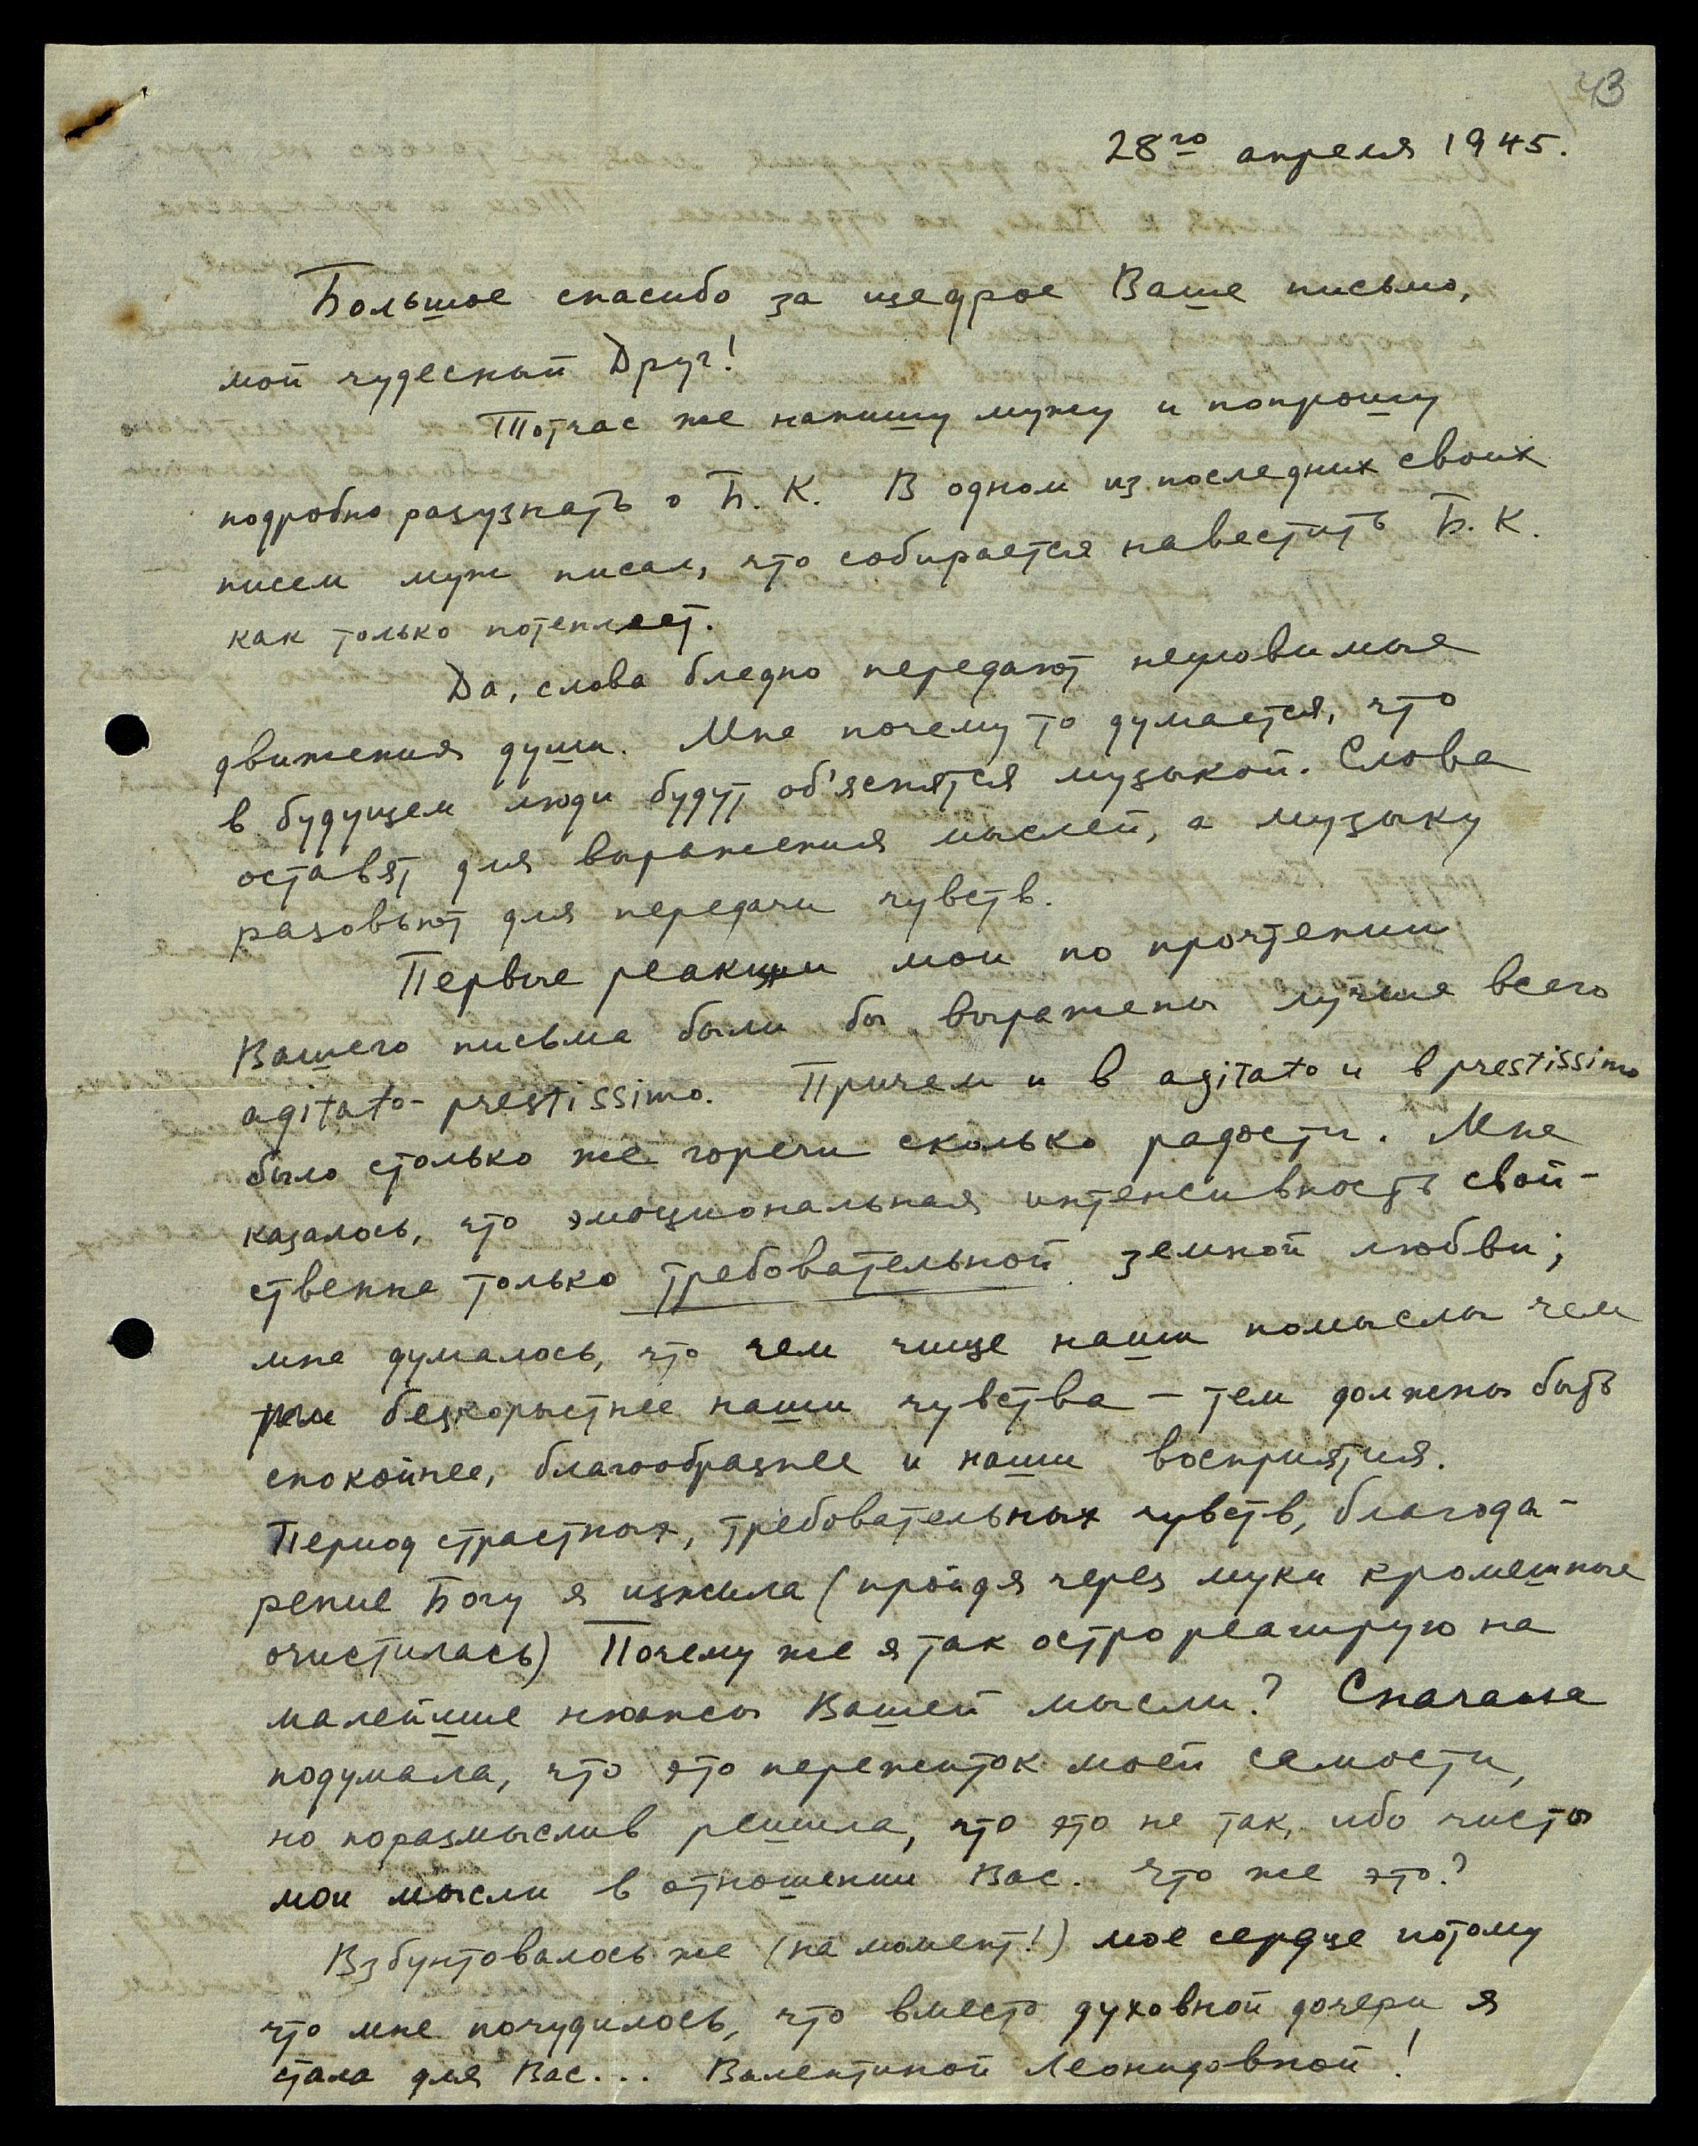 43
28го апреля 1945.
Большое спасибо за щедрое Ваше письмо,
мой чудесный Друг!
Тотчас же напишу мужу и попрошу
подробно разузнать о Б. К. В одном из последних своих
писем муж писал, что собирается навестить Б. К.
как только потеплеет.
Да, слова бледно передают неуловимые
движения души. Мне почему то думается, что
в будущем люди будут об'яснятся музыкой. Слова
оставят для выражения мыслей, а музыку
разовьют для передачи чувств.
Первые реакции мои по прочтении
Вашего письма были бы выражены лучше всего
agitato-prestissimo. Причем и в agitato и в prestissimo
было столько же горечи сколько радости. Мне
казалось, что эмоциональная интенсивность свой-
ственна только требовательной земной любви;
мне думалось, что чем чище наши помыслы чем
безкорыстнее наши чувства – тем должны быть
спокойнее, благообразнее и наши восприятия.
Период страстных, требовательных чувств, благода-
рение Богу я изжила (пройдя через муки кромешные
очистилась) Почему же я так остро реагирую на
малейшие нюансы Вашей мысли? Сначала
подумала, что это пережиток моей самости,
но поразмыслив решила, что это не так, ибо чисты
мои мысли в отношении Вас. Что же это?
Взбунтовалось же (на момент!) мое сердце потому
что мне почудилось, что вместо духовной дочери я
стала для Вас... Валентиной Леонидовной!